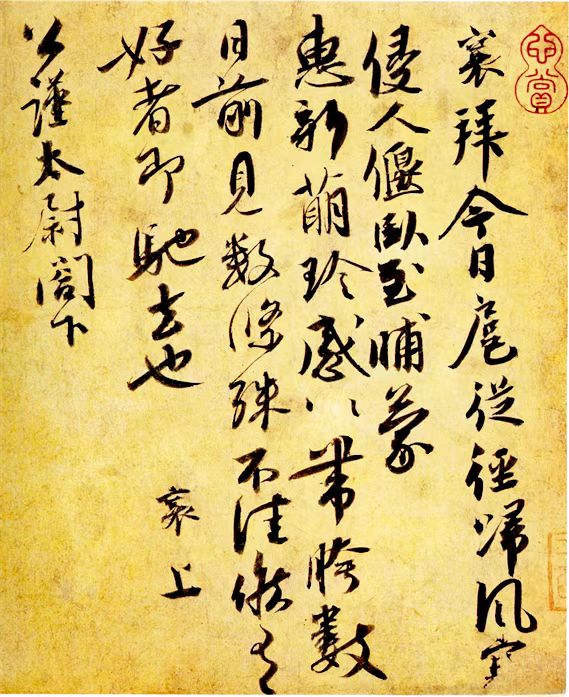 心賞
襄拜今日扈從徑歸風寒
侵人偃臥至晡蒙
惠新萌珍感〻帶胯數
日前見數條殊不佳候有
好者即馳去也
襄上
公謹太尉閣下